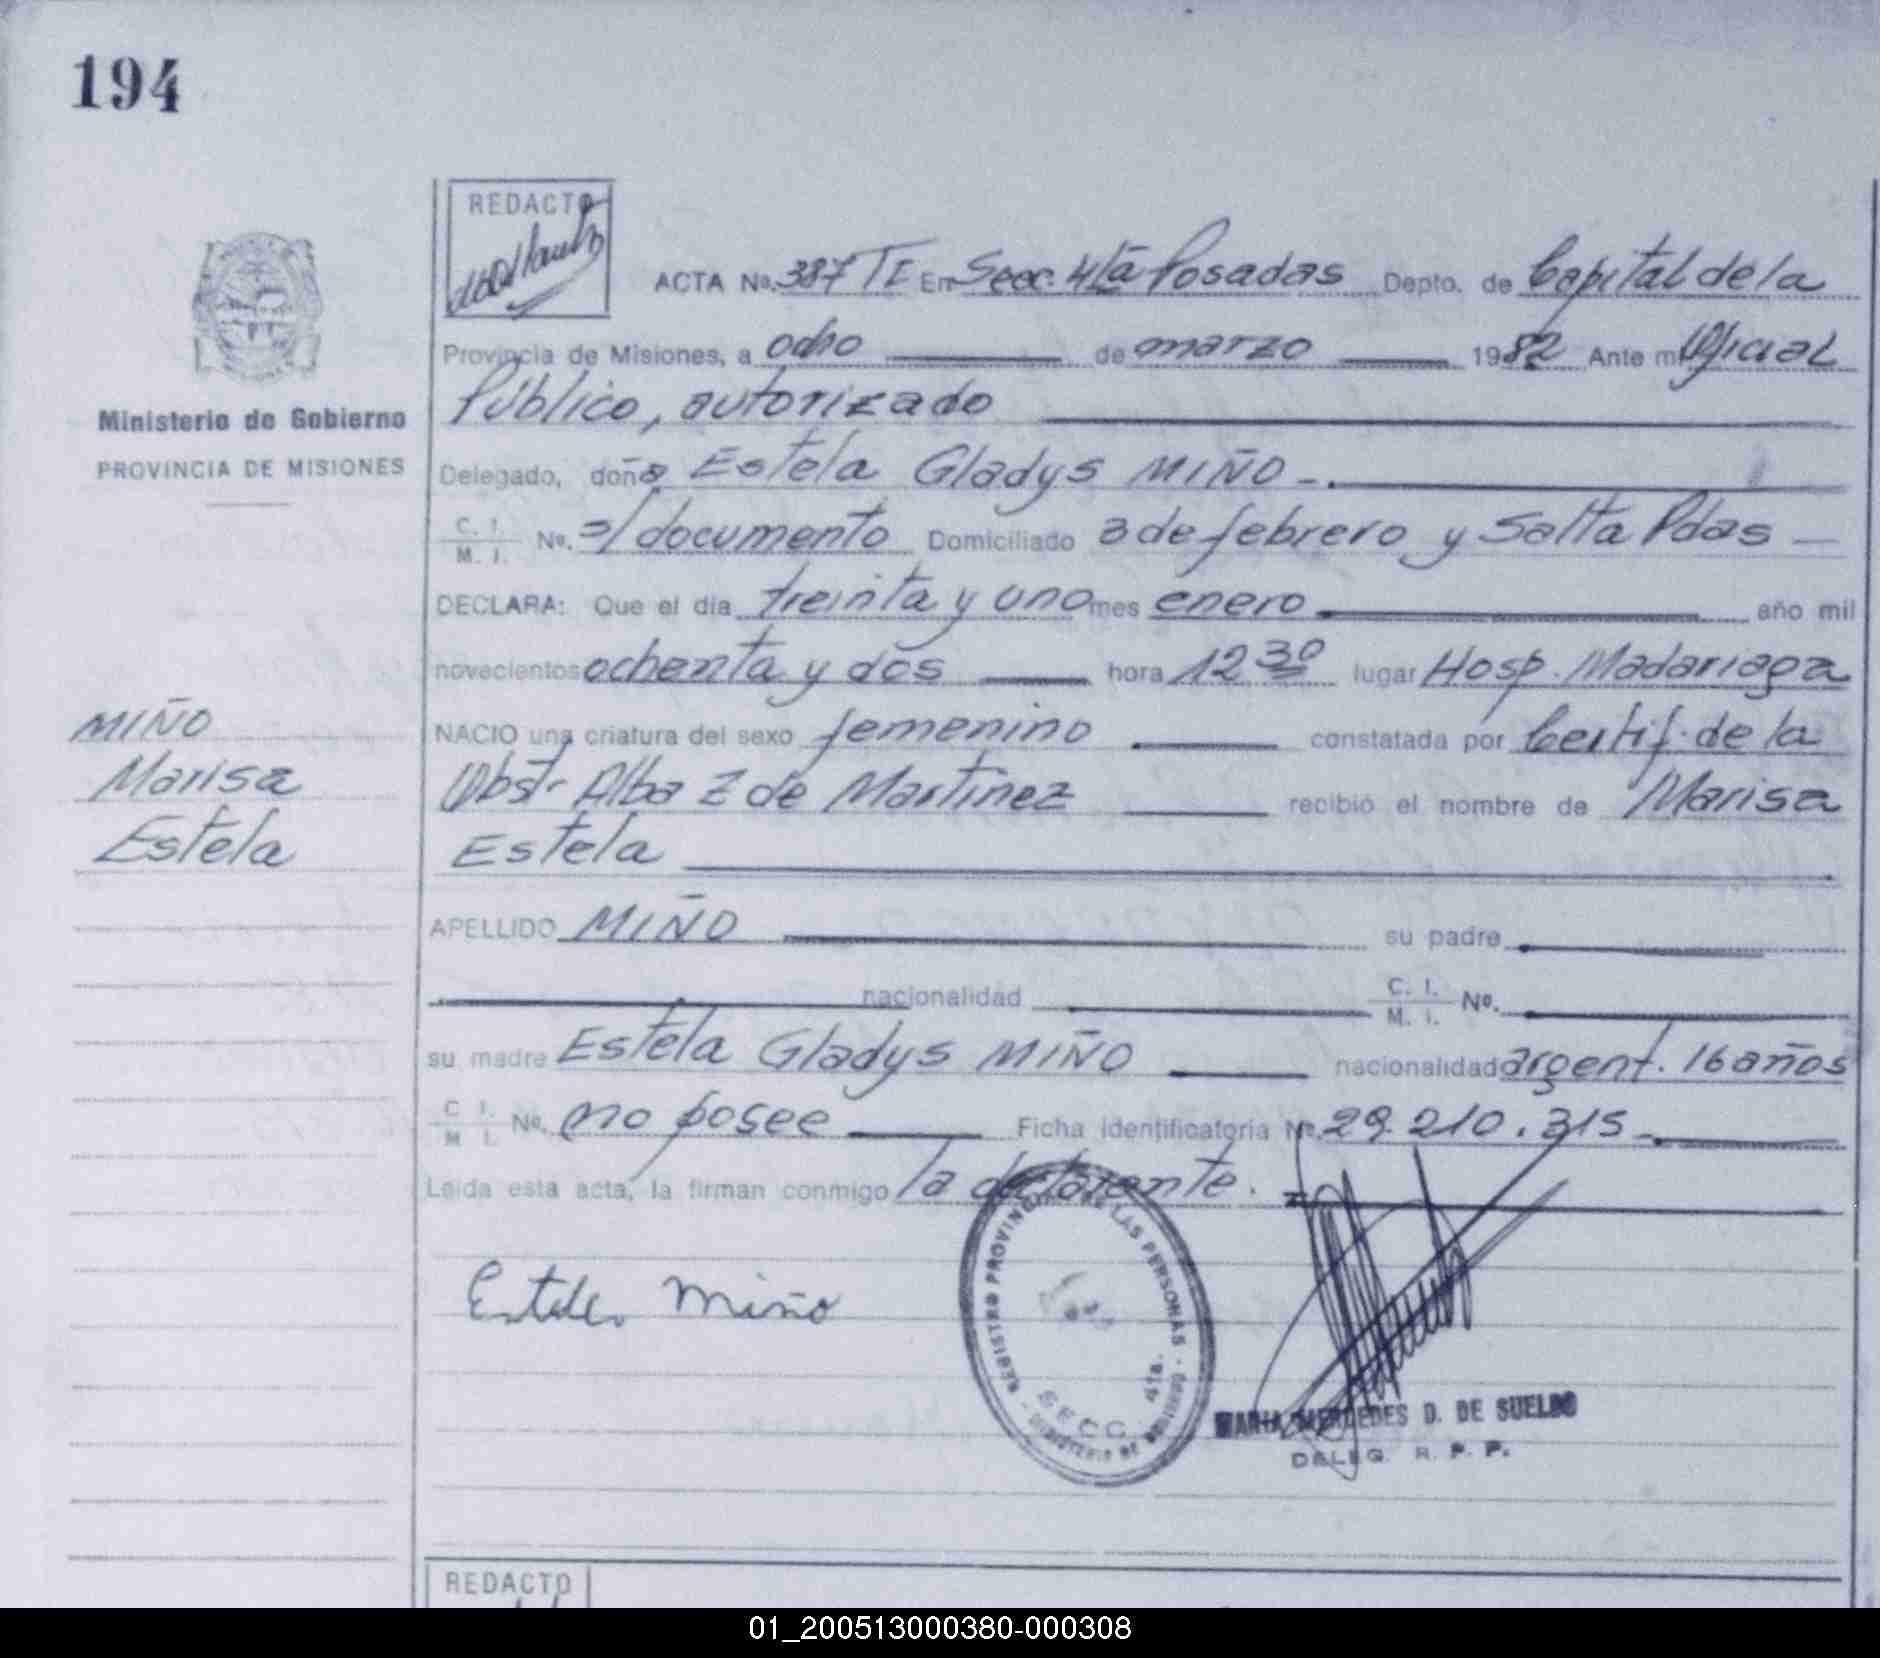 194
REDACTO
ACTA No. 387 TE En Secc. 4ta Posadas Depto. de Capital de la
Provincia de Misiones, a ocho de marzo 1982 Ante mi Oficial
Público, autorizado
Ministerio de Gobierno
PROVINCIA DE MISIONES
Delegado, doña Estela Gladys MIÑO -.
C. I. M. I. Nº. s/documento Domiciliado 3 de febrero y Salta Pdas —
DECLARA: Que el día treinta y uno mes enero año mil
novecientos ochenta y dos hora 12 30 lugar Hosp. Madariaga
MIÑO
NACIO una criatura del sexo femenino constatada por Certif. de la
Marisa
Obstr Alba Z de Martinez recibió el nombre de Marisa
Estela
Estela
APELLIDO MIÑO su padre
nacionalidad C. I. M. I. Nº.
su madre Estela Gladys MIÑO nacionalidad argent. 16 años
C I. M I. Nº. no posee Ficha identificatoria Nº. 29.210.315-.
Leída esta acta, la firman conmigo la declarante.
Estela Miño
REGISTRO PROVINCIAL DE LAS PERSONAS
SECC. 4ta.
MINISTERIO DE GOBIERNO
MARIA MERCEDES D. DE SUELDO
DELEG. R. P. P.
REDACTO
01_200513000380-000308